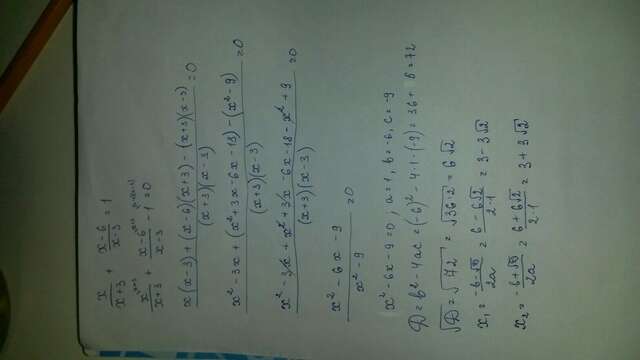 x/(x+3) + (x-6)/(x-3) = 1
x/(x+3) + (x-6)/(x-3) - 1 = 0
(x(x-3) + (x-6)(x+3) - (x+3)(x-3))/((x+3)(x-3)) = 0
(x² - 3x + (x² + 3x - 6x - 18) - (x² - 9))/((x+3)(x-3)) = 0
(x² - 3x + x² + 3x - 6x - 18 - x² + 9)/((x+3)(x-3)) = 0
(x² - 6x - 9)/(x² - 9) = 0
x² - 6x - 9 = 0; a = 1, b = -6, c = -9
D = b² - 4ac = (-6)² - 4·1·(-9) = 36 + 8 = 72
√D = √72 = √36·2 = 6√2
x₁ = (-b-√D)/2a = (6 - 6√2)/(2·1) = 3 - 3√2
x₂ = (-b+√D)/2a = (6 + 6√2)/(2·1) = 3 + 3√2